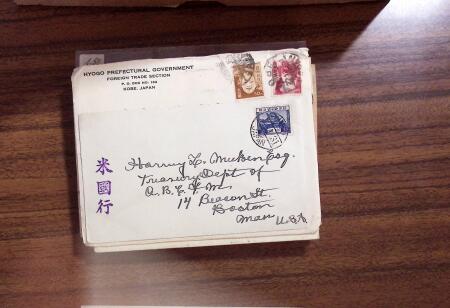 HYOGO PREFECTURAL GOVERNMENT
FOREIGN TRADE SECTION
P. O. BOX NO. 166
KOBE, JAPAN
米國行
Esq.
Treasury Dept of
A.B.C.F.M.
14 Beacon St.
Boston
Mass U.S.A.